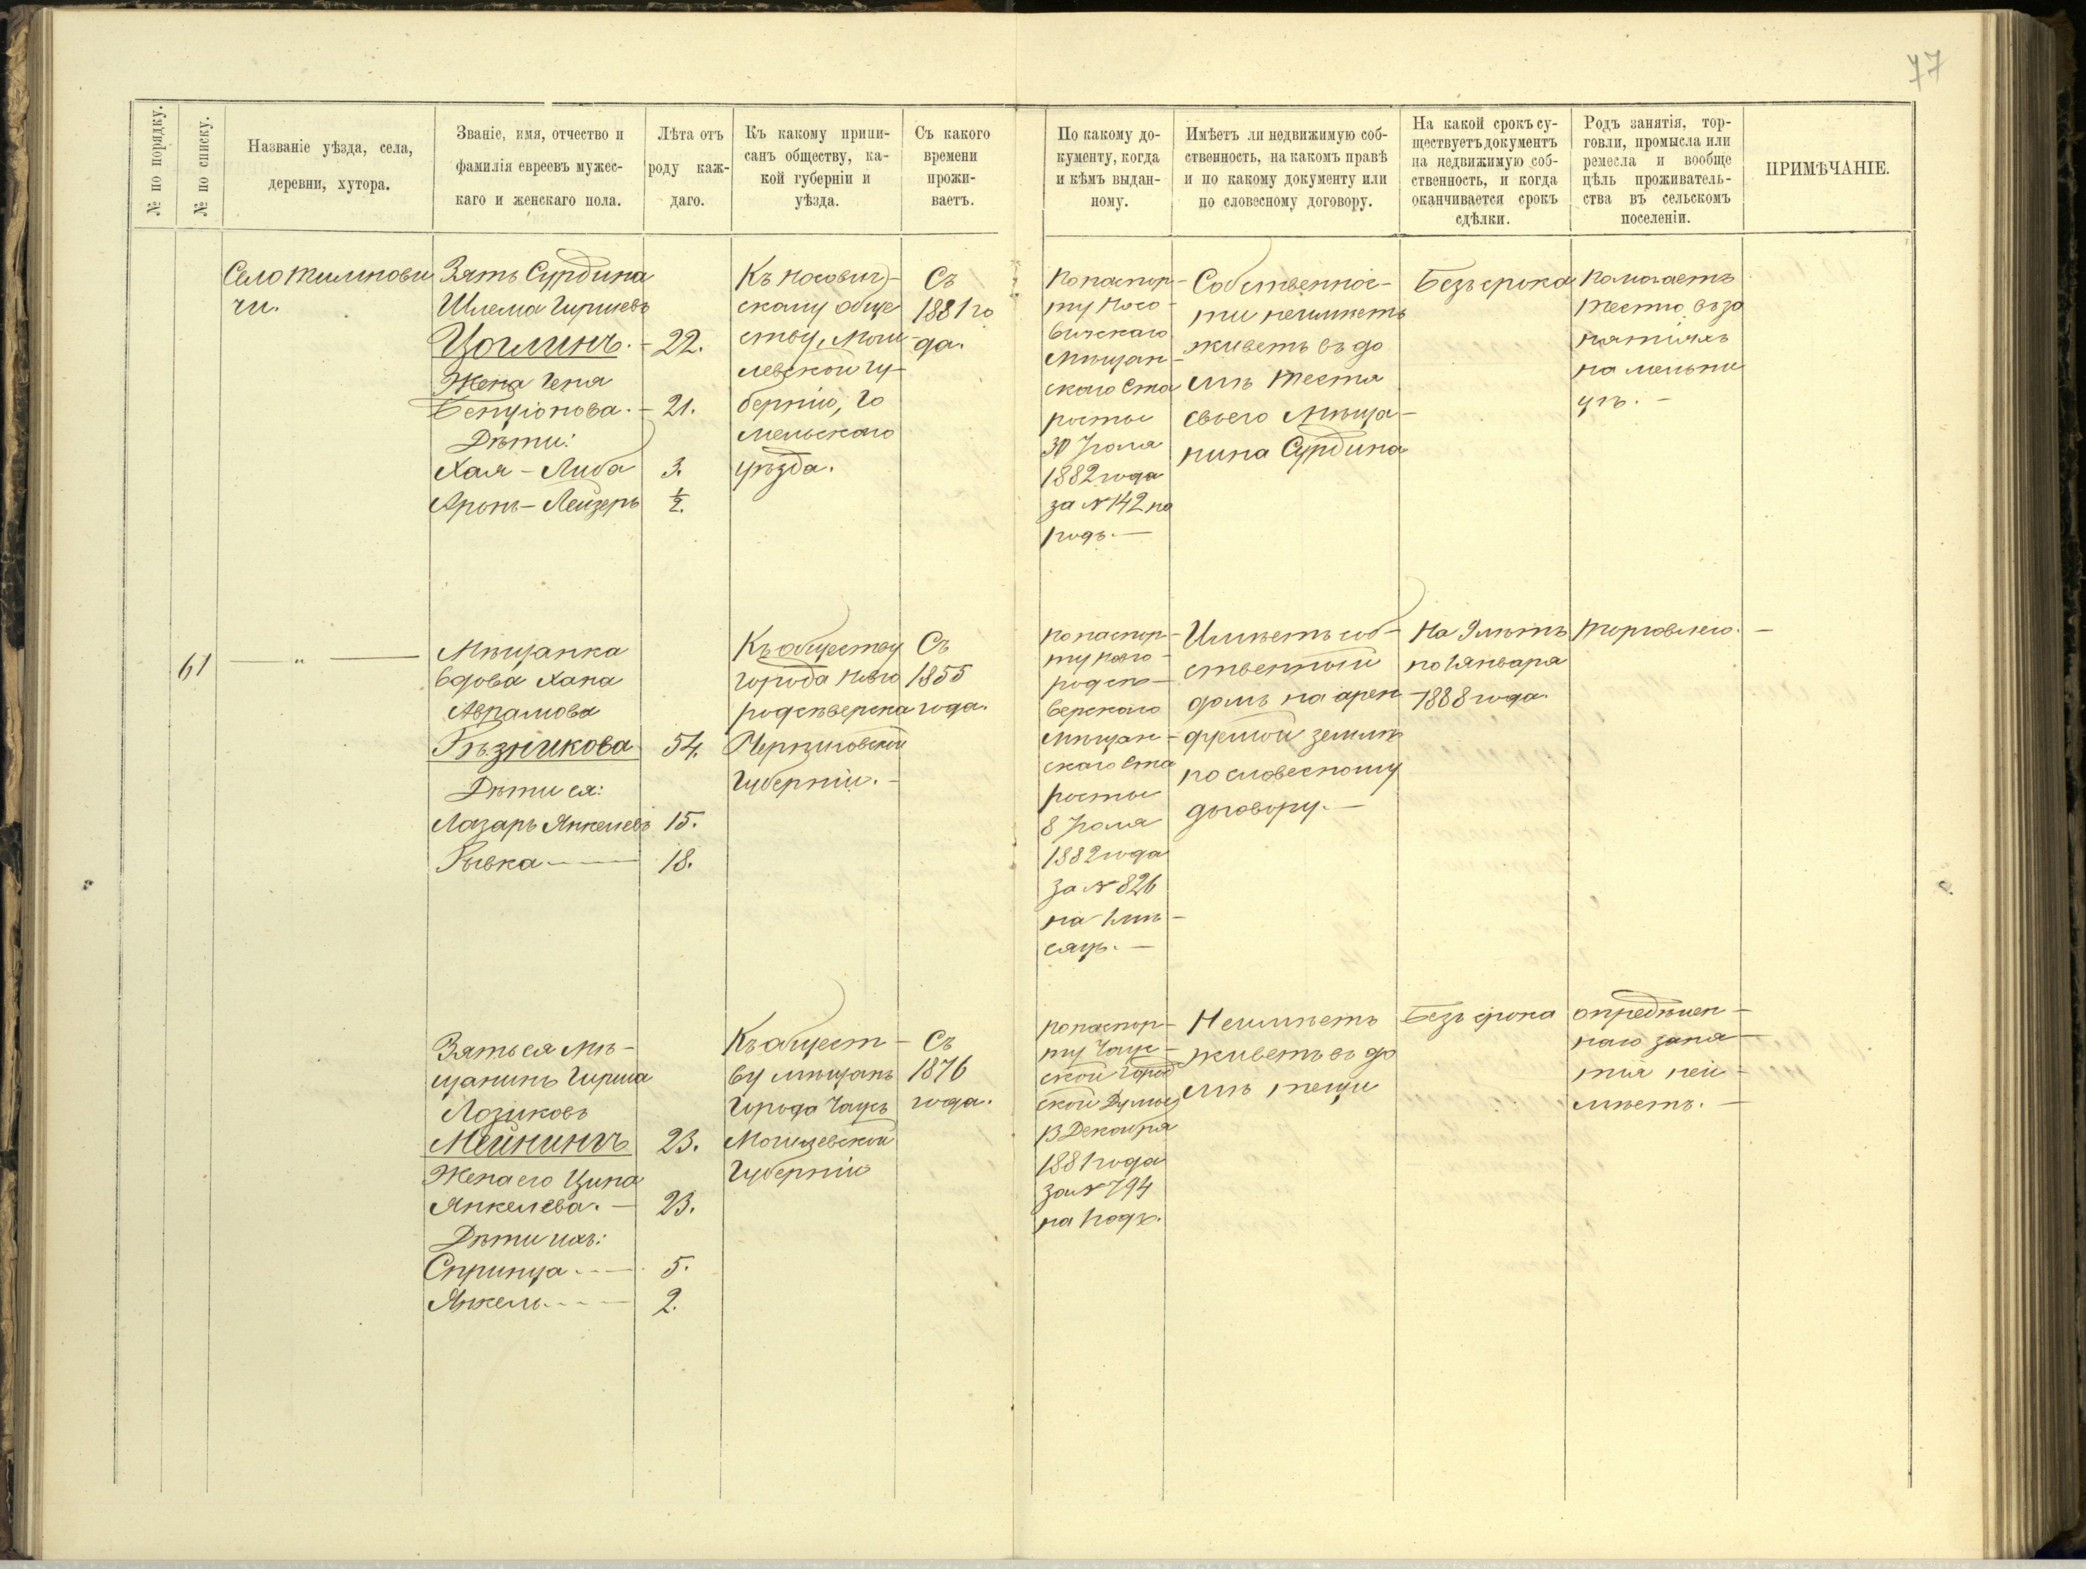 77
№ по порядку.
№ по списку.
Названіе уѣзда, села,
деревни, хутора.
Званіе, имя, отчество и
фамилія евреевъ мужес-
каго и женскаго пола.
Лѣта отъ
роду каж-
даго.
Къ какому припи-
санъ обществу, ка-
кой губерніи и
уѣзда.
Съ какого
времени
прожи-
ваетъ.
По какому до-
кументу, когда
и кѣмъ выдан-
ному.
Имѣетъ ли недвижимую соб-
ственность, на какомъ правѣ
и по какому документу или
по словесному договору.
На какой срокъ су-
ществуетъ документъ
на недвижимую соб-
ственность, и когда
оканчивается срокъ
сдѣлки.
Родъ занятія, тор-
говли, промысла или
ремесла и вообще
цѣль проживатель-
ства въ сельскомъ
поселеніи.
ПРИМѢЧАНІЕ.
Село
чи.
Зять Сурдина
Шлема Гиршевъ
Цоглинъ. - 22.
Жена Геня
Бенціонова. - 21.
Дѣти:
Хая - Либа 3.
Аронъ - Лейзеръ ½.
Къ Носович-
скому обще
ству, Моги
левской гу-
берніи, Го
мельскаго
уѣзда.
Съ
1881 го
да.
По паспор-
ту Носо-
вичскаго
мѣщан-
скаго Ста
росты
30 Іюля
1882 года
за № 142 на
1 годъ. —
Собственнос-
ти неимѣетъ
живетъ въ до
мѣ тестя
своего мѣща-
нина Сурдина
Безъ срока
Помогаетъ
тестю въ за
нятіяхъ
на мельни
цѣ. -
61
— " —
Мѣщанка
вдова Хана
Абрамова
Рѣзникова 54.
Дѣти ея:
Лазарь Янкелевъ 15.
Рывка 18.
Къ обществу
города Новго
родсѣверска
Черниговской
Губерніи. -
Съ
1855
года.
По паспор-
ту Новго-
родсѣ-
верскаго
мѣщан-
скаго Ста
росты
8 Іюля
1882 года
за № 826
на 1 мѣ-
сяцъ. —
Имѣетъ соб-
ственный
домъ на арен
дуемой землѣ
по словесному
договору. —
На 9 лѣтъ
по 1 Января
1888 года.
Торговлею. -
Зять ея мѣ-
щанинъ Гирша
Лозиковъ
Мейнинъ 23.
Жена его Ципа
Янкелева. - 23.
Дѣти ихъ:
Спринца 5.
Янкель 2.
Къ общест-
ву мѣщанъ
Города Чаусъ
Могилевской
Губерніи
Съ
1876
года.
По паспор-
ту Чаус-
ской Город
ской Думы
13 Декабря
1881 года
за № 794
на 1 годъ.
Неимѣетъ
живетъ въ до
мѣ тещи
Безъ срока
Опредѣлен-
наго заня-
тія неи-
мѣетъ. -